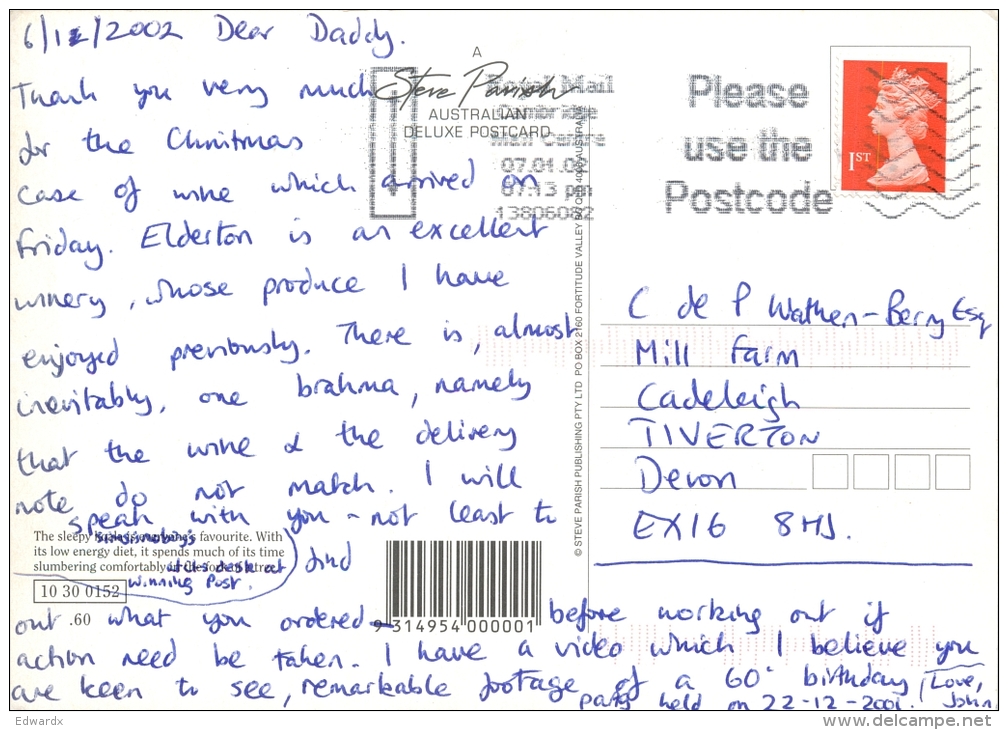 6/1/2002 Dear Daddy.
Thank you very much
for the Christmas
case of wine which arrived on
Friday. Elderton is an excellent
winery, whose produce I have
enjoyed previously. There is, almost
inevitably, one brahma, namely
that the wine & the delivery
note do not match. I will
speak with you - not least to
find
out what you ordered - before working out if
action need be taken. I have a video which I believe you
are keen to see, remarkable footage of a 60° birthday
party held on 22-12-2001. Love,
John
winning Post.
The sleepy favourite. With
its low energy diet, it spends much of its time
slumbering comfortably in the tree
10 30 0152
.60
9 314954 000001
A
Steve Parish
AUSTRALIAN
DELUXE POSTCARD
© STEVE PARISH PUBLISHING PTY LTD PO BOX 2160 FORTITUDE VALLEY BC QLD 4006 AUSTRALIA
Royal Mail
Mail Centre
07.01.0
07.13 pm
13806082
Please
use the
Postcode
1ST
C de P Wathen-Berry Esq
Mill Farm
Cadeleigh
TIVERTON
Devon
EX16 8HJ.
Edwardx
www.delcampe.net